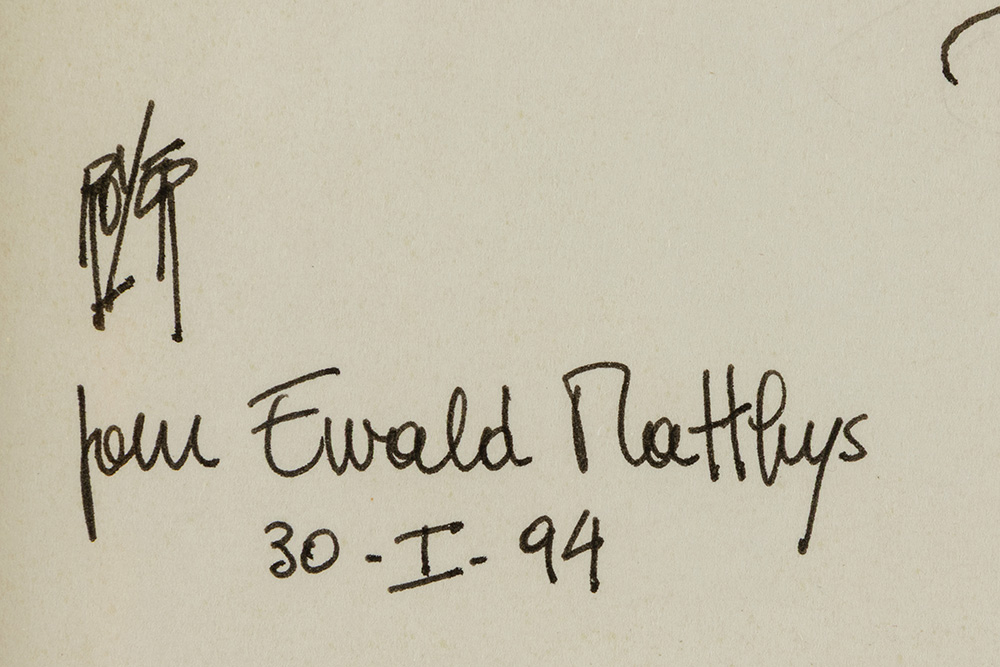 ROYER
pour Ewald Matthys
30-I-94